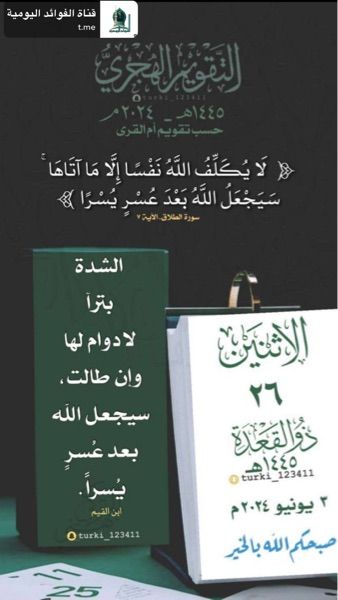 قناة الفوائد اليومية
t.me
التقويم الهجري
turki_123411
١٤٤٥هـ - ٢٠٢٤م
حسب تقويم أم القرى
﴿ لَا يُكَلِّفُ اللَّهُ نَفْسًا إِلَّا مَا آتَاهَا ۚ
سَيَجْعَلُ اللَّهُ بَعْدَ عُسْرٍ يُسْرًا ﴾
سورة الطلاق، الآية ٧
الشدة
بتراً
لا دوام لها
وإن طالت،
سيجعل الله
بعد عُسرٍ
يُسراً.
ابن القيم
turki_123411
الاثنين
٢٦
ذو القعدة
١٤٤٥هـ
turki_123411
٣ يونيو ٢٠٢٤م
صبحكم الله بالخير
11
25